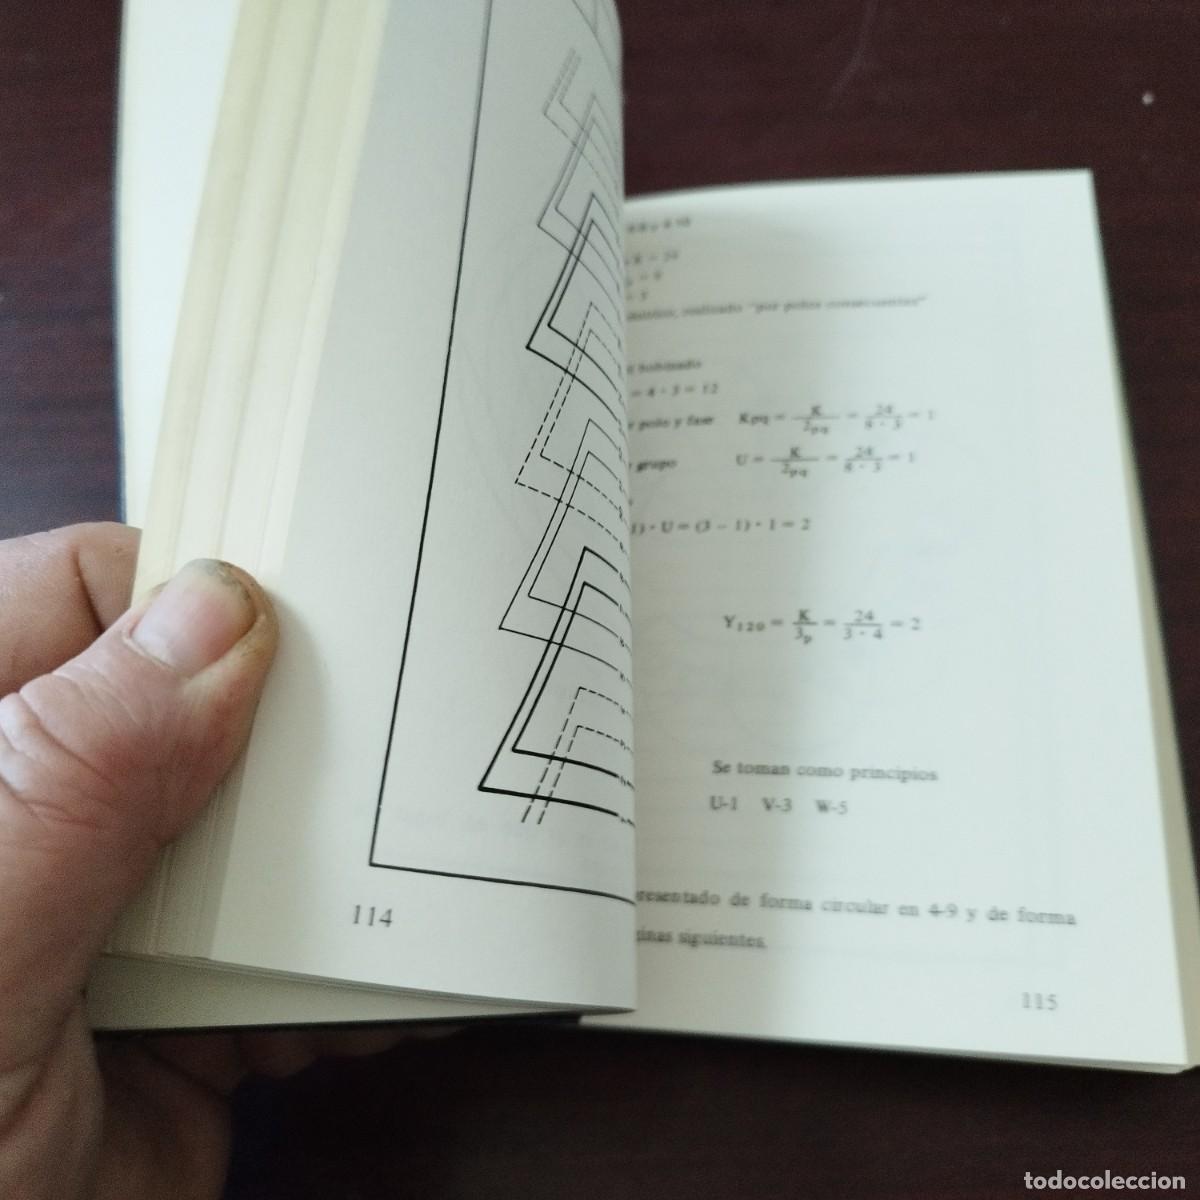 114
K = 24
realizado "por polos consecuentes"
bobinado
= 4 · 3 = 12
polo y fase Kpq = K / 2pq = 24 / 8 · 3 = 1
grupo U = K / 2pq = 24 / 8 · 3 = 1
1) · U = (3 – 1) · 1 = 2
Y120 = K / 3p = 24 / 3 · 4 = 2
Se toman como principios
U-1 V-3 W-5
de forma circular en 4-9 y de forma
siguientes.
115
todocoleccion